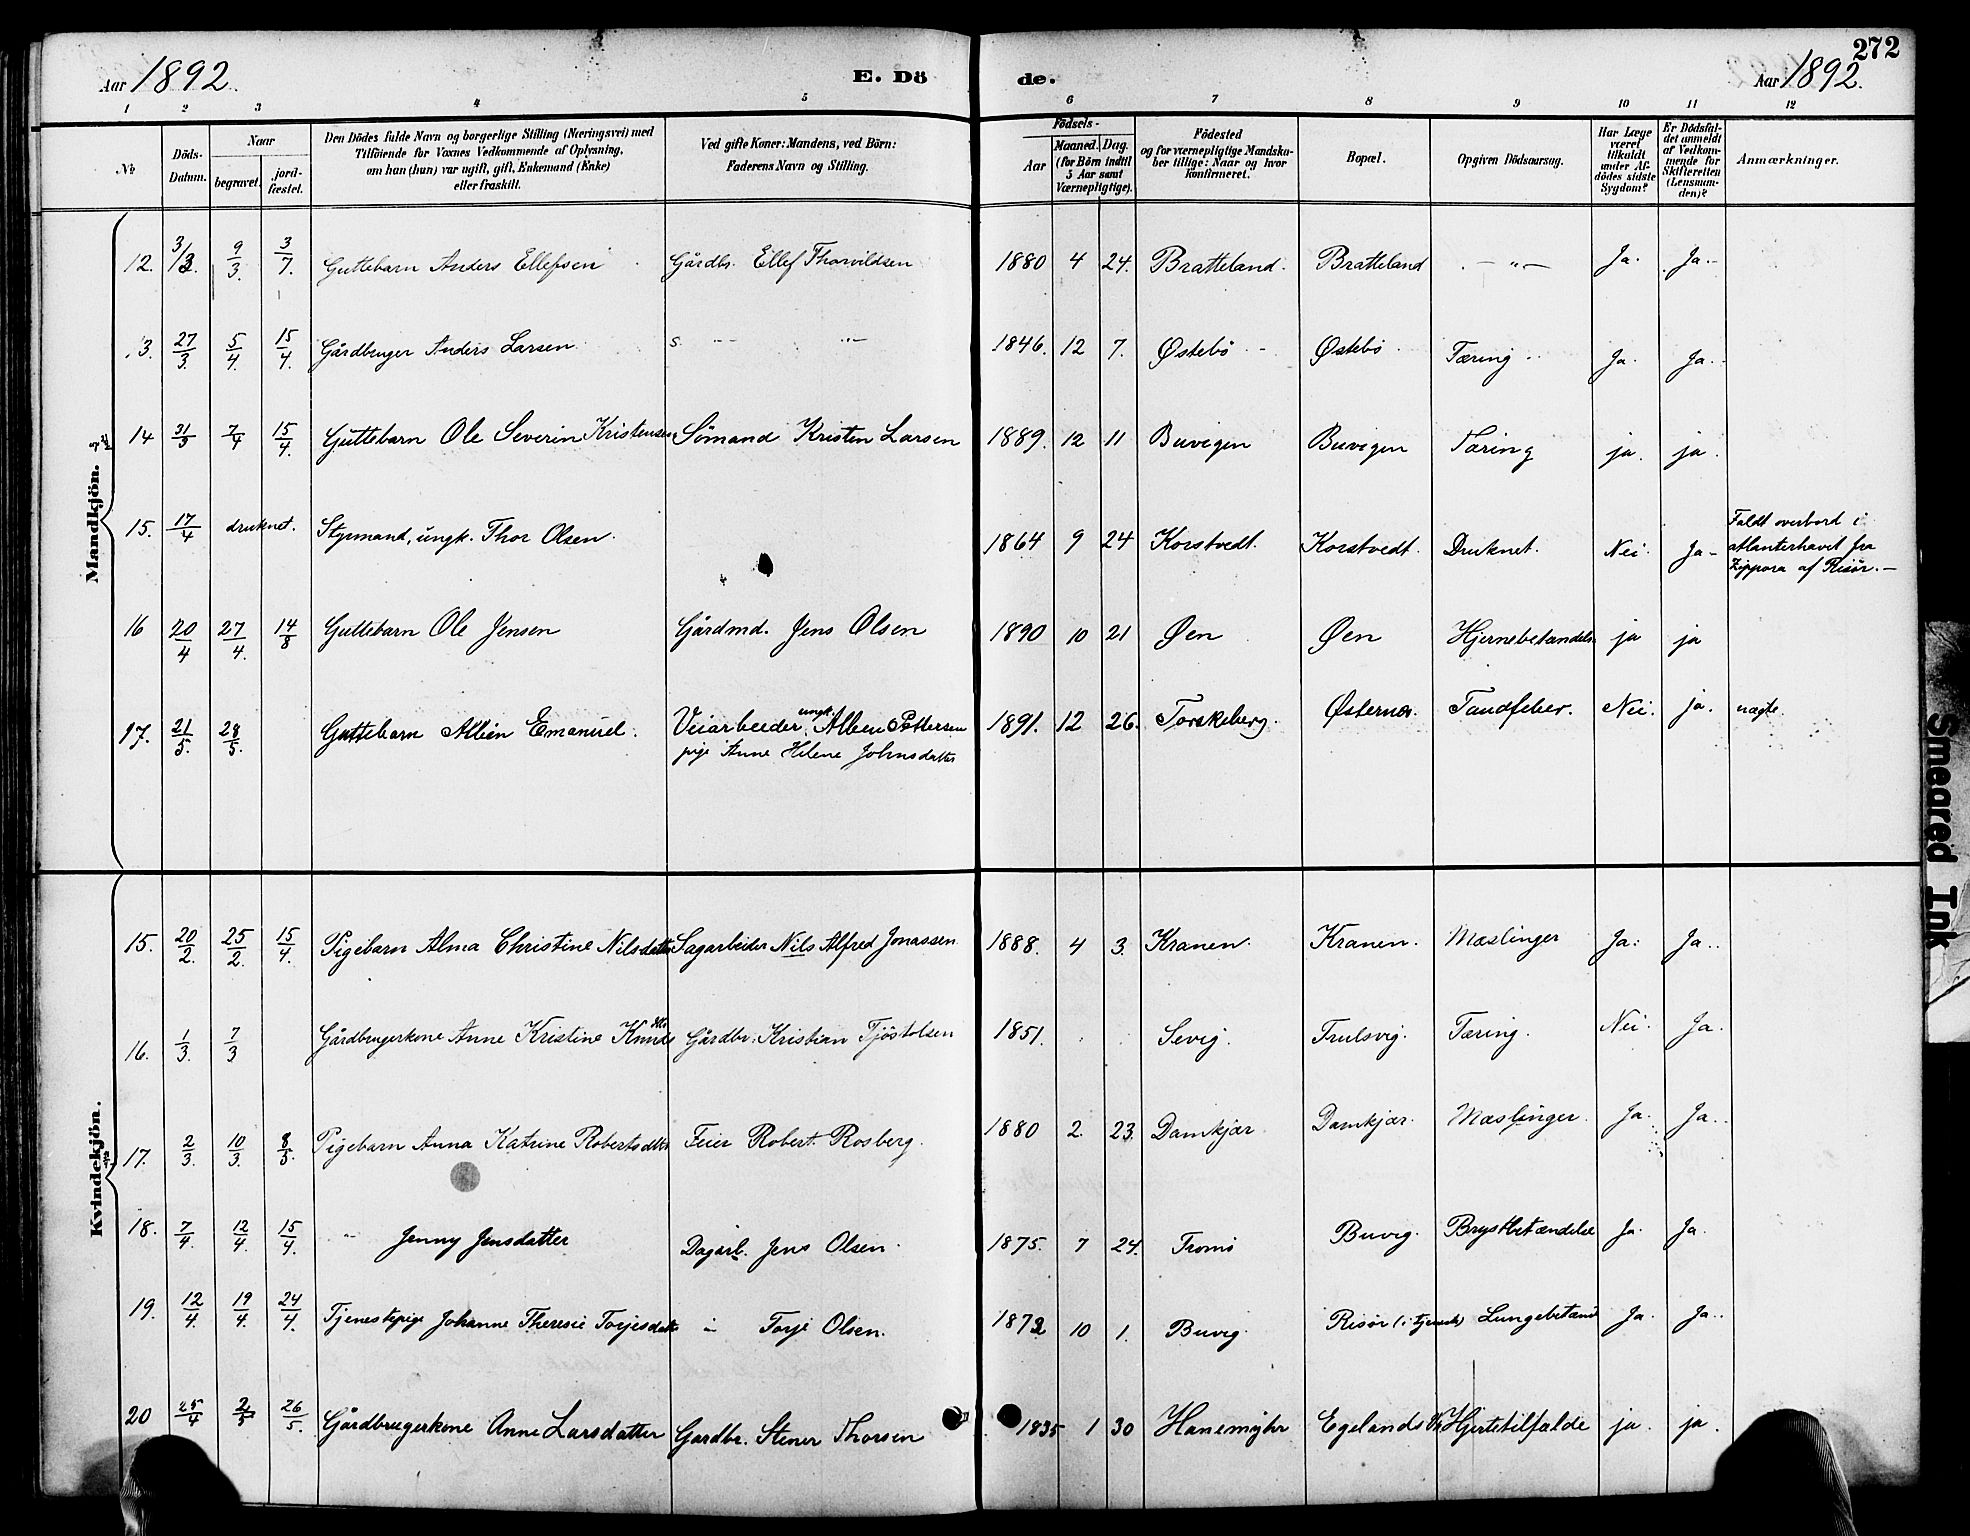 272
Aar 1892.
E. Dö
de.
Aar 1892.
1 2 3 4 5 6 7 8 9 10 11 12
No
Döds-Datum.
Naar
begravet.
jord-fæstet.
Den Dödes fulde Navn og borgerlige Stilling (Næringsvei) med
Tilföiende for Voxnes Vedkommende af Oplysning,
om han (hun) var ugift, gift, Enkemand (Enke)
eller fraskilt.
Ved gifte Koner: Mandens, ved Börn:
Faderens Navn og Stilling.
Födsels-
Aar
Maaned. Dag.
(for Börn indtil
5 Aar samt
Værnepligtige).
Födested
og for værnepligtige Mandska-
ber tillige: Naar og hvor
konfirmeret.
Bopæl.
Opgiven Dödsaarsag.
Har Læge
været
tilkaldt
under Af-
dödes sidste
Sygdom?
Er Dödsfal-
det anmeldt
af Vedkom-
mende for
Skifteretten
(Lensman-
den)?
Anmærkninger.
Mandkjön.
12. 3/3. 9/3. 3/7. Guttebarn Anders Ellefsen Gårdbr. Ellef Thorvildsen 1880 4 24. Bratteland. Bratteland — " — Ja. Ja.
13. 27/3 5/4. 15/4. Gårdbruger Anders Larsen s. — " — 1846. 12 7. Østebö Østebö Tæring Ja. Ja.
14 31/3 7/4 15/4. Guttebarn Ole Severin Kristensen Sömand Kristen Larsen 1889. 12 11 Buvigen Buvigen Tæring ja. ja.
15. 17/4 druknet. Styrmand, ungk. Thor Olsen. 1864 9 24 Korstvedt. Korstvedt. Druknet. Nei. Ja
Faldt overbord i
atlanterhavet fra
Zippora af Risör.
16 20/4 27/4. 14/8 Guttebarn Ole Jensen Gårdmd. Jens Olsen 1890 10 21 Øen Øen Hjernebetændelse ja ja
17. 21/5. 28/5. Guttebarn Albin Emanuel. Veiarbeider, ungk. Albin Pettersen
pige Anne Helene Johnsdatter
1891. 12 26. Torskeberg. Østernes. Tandfeber. Nei. ja. uægte
Kvindekjön.
15. 20/2. 25/2. 15/4. Pigebarn Alma Christine Nilsdatter Sagarbeider Nils Alfred Jonassen 1888. 4 3. Kranen. Kranen. Mæslinger Ja. Ja.
16. 1/3. 7/3 Gårdbrugerkone Anne Kristine Knuds dtr Gårdbr. Kristian Tjöstolsen 1851. Sevig. Trulsvig. Tæring. Nei. Ja.
17. 2/3. 10/3. 8/5. Pigebarn Anna Katrine Robertsdtr Feier Robert Rosberg. 1880 2. 23. Damkjær Damkjær. Mæslinger. Ja. Ja.
18. 7/4. 12/4. 15/4. " Jenny Jensdatter Dagarb. Jens Olsen. 1875. 7 24. Tromö Buvig. Brystbetændelse Ja. Ja.
19. 12/4. 19/4. 24/4. Tjenestepige Johanne Theresie Torjesdatter " Torje Olsen. 1872 10 1. Buvig. Risör (i tjeneste) Lungebetænd Ja. Ja.
20 25/4 2/5 26/5. Gårdbrugerkone Anne Larsdatter Gardbr. Stener Thorsen 1835 1 30 Hanemyhr Egelands Vk Hjertetilfælde ja. ja.
Smeared Ink